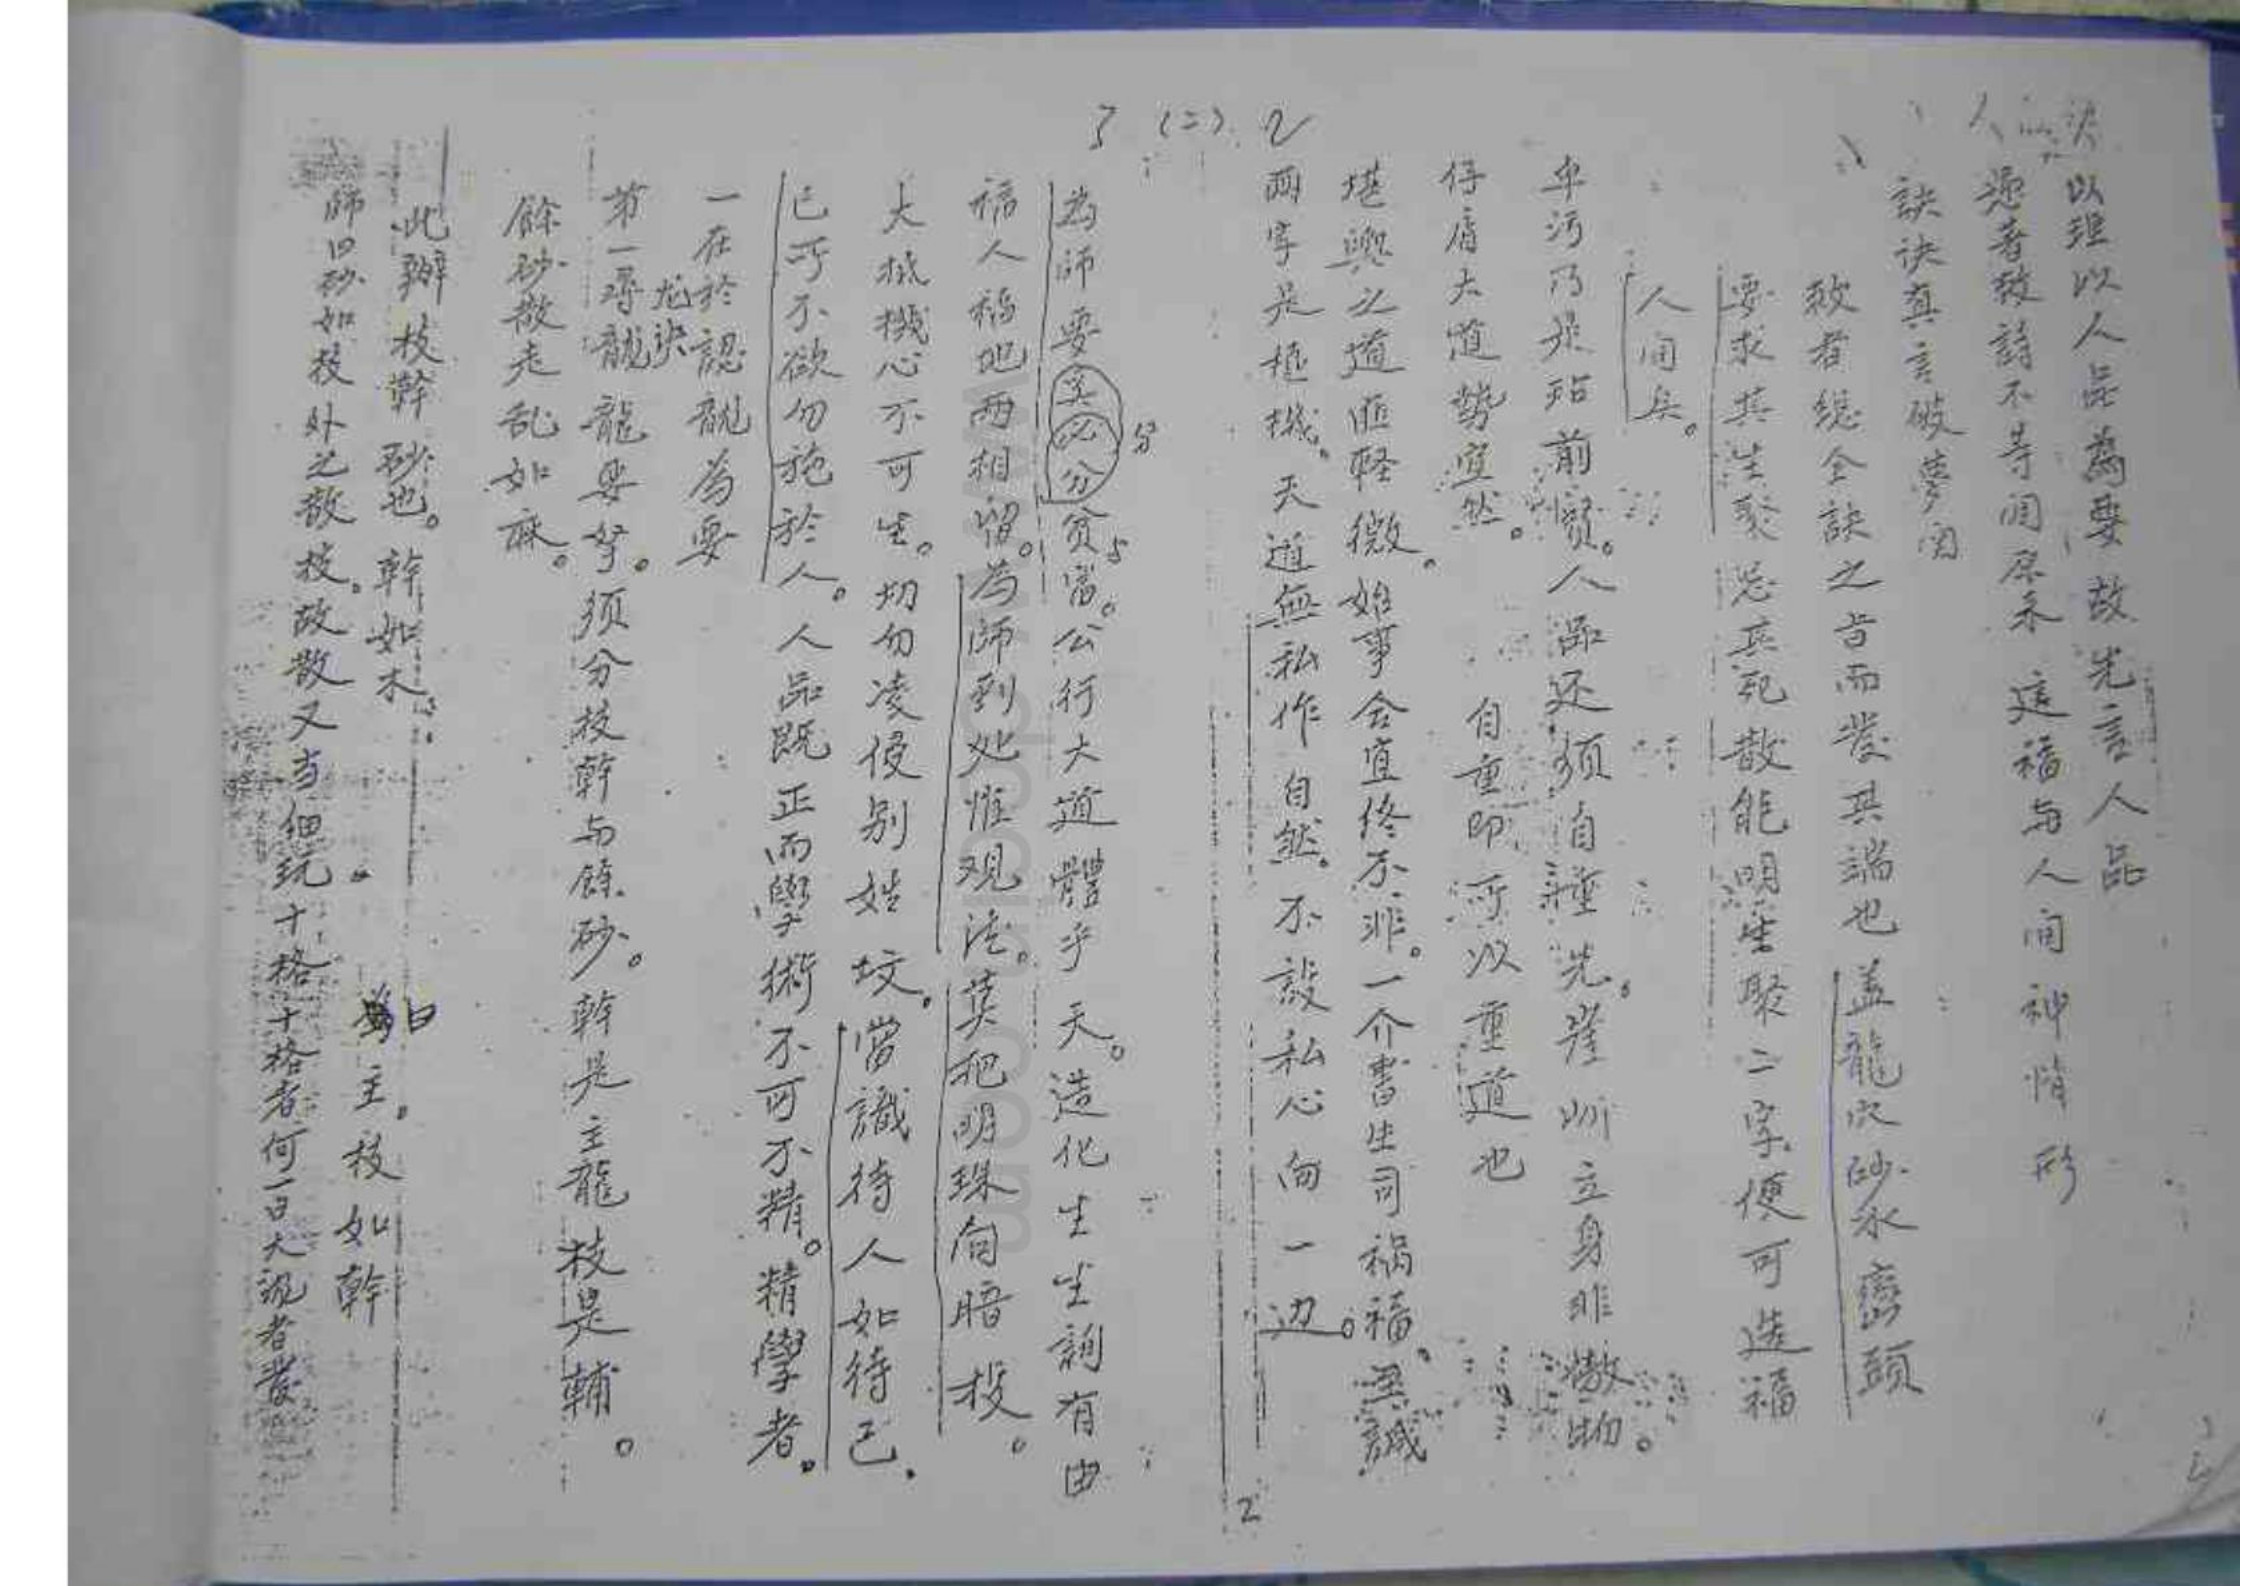 决以理以人品為要故先言人品
人 遞著致詩不等闲 这福与人间神情形
訣诀真言破夢
致者總全訣之旨而发其端也盖龍穴砂水巒頭
要求其生聚忌其死散能明生聚二字便可造福
人间矣。
卑污乃是玷前贤。人品还须自重先。崖岸立身非傲物。
仔肩大道势宜然。 自重即所以重道也
堪舆之道匪轻微。始事会宜终不非。一介書生司祸福。至誠
两字是枢機。天道無私作自然。不設私心向一边。
3 (二) 2
為師要 必分贫富。公行大道體乎天。造化生生詢有由
分
福人福地两相留。為師到处惟观法。莫把明珠向暗投。
大抵機心不可生。切勿凌侵别姓坟。當識待人如待己.
己所不欲勿施於人。人品既正而學術不可不精。精學者。
一在於認龍為要
龙诀
第一尋龍龍要拏。须分枝幹与餘砂。幹是主龍枝是輔。
餘砂散走乱如麻。
此辦枝幹砂也。幹如木。
曰 主。枝如幹
師曰砂如枝外之散枝。故散又当细玩。十格十格者何一曰大说者发
2
www.docin.com